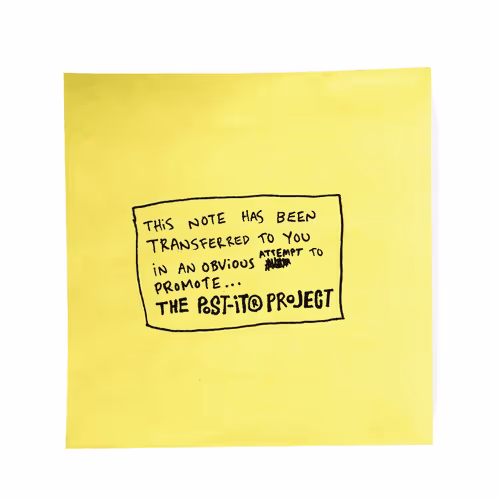 THiS NOTE HAS BEEN
TRANSFERRED TO YOU
iN AN OBViOUS ATTEMPT TO
PROMOTE...
THE POST-iT® PROJECT